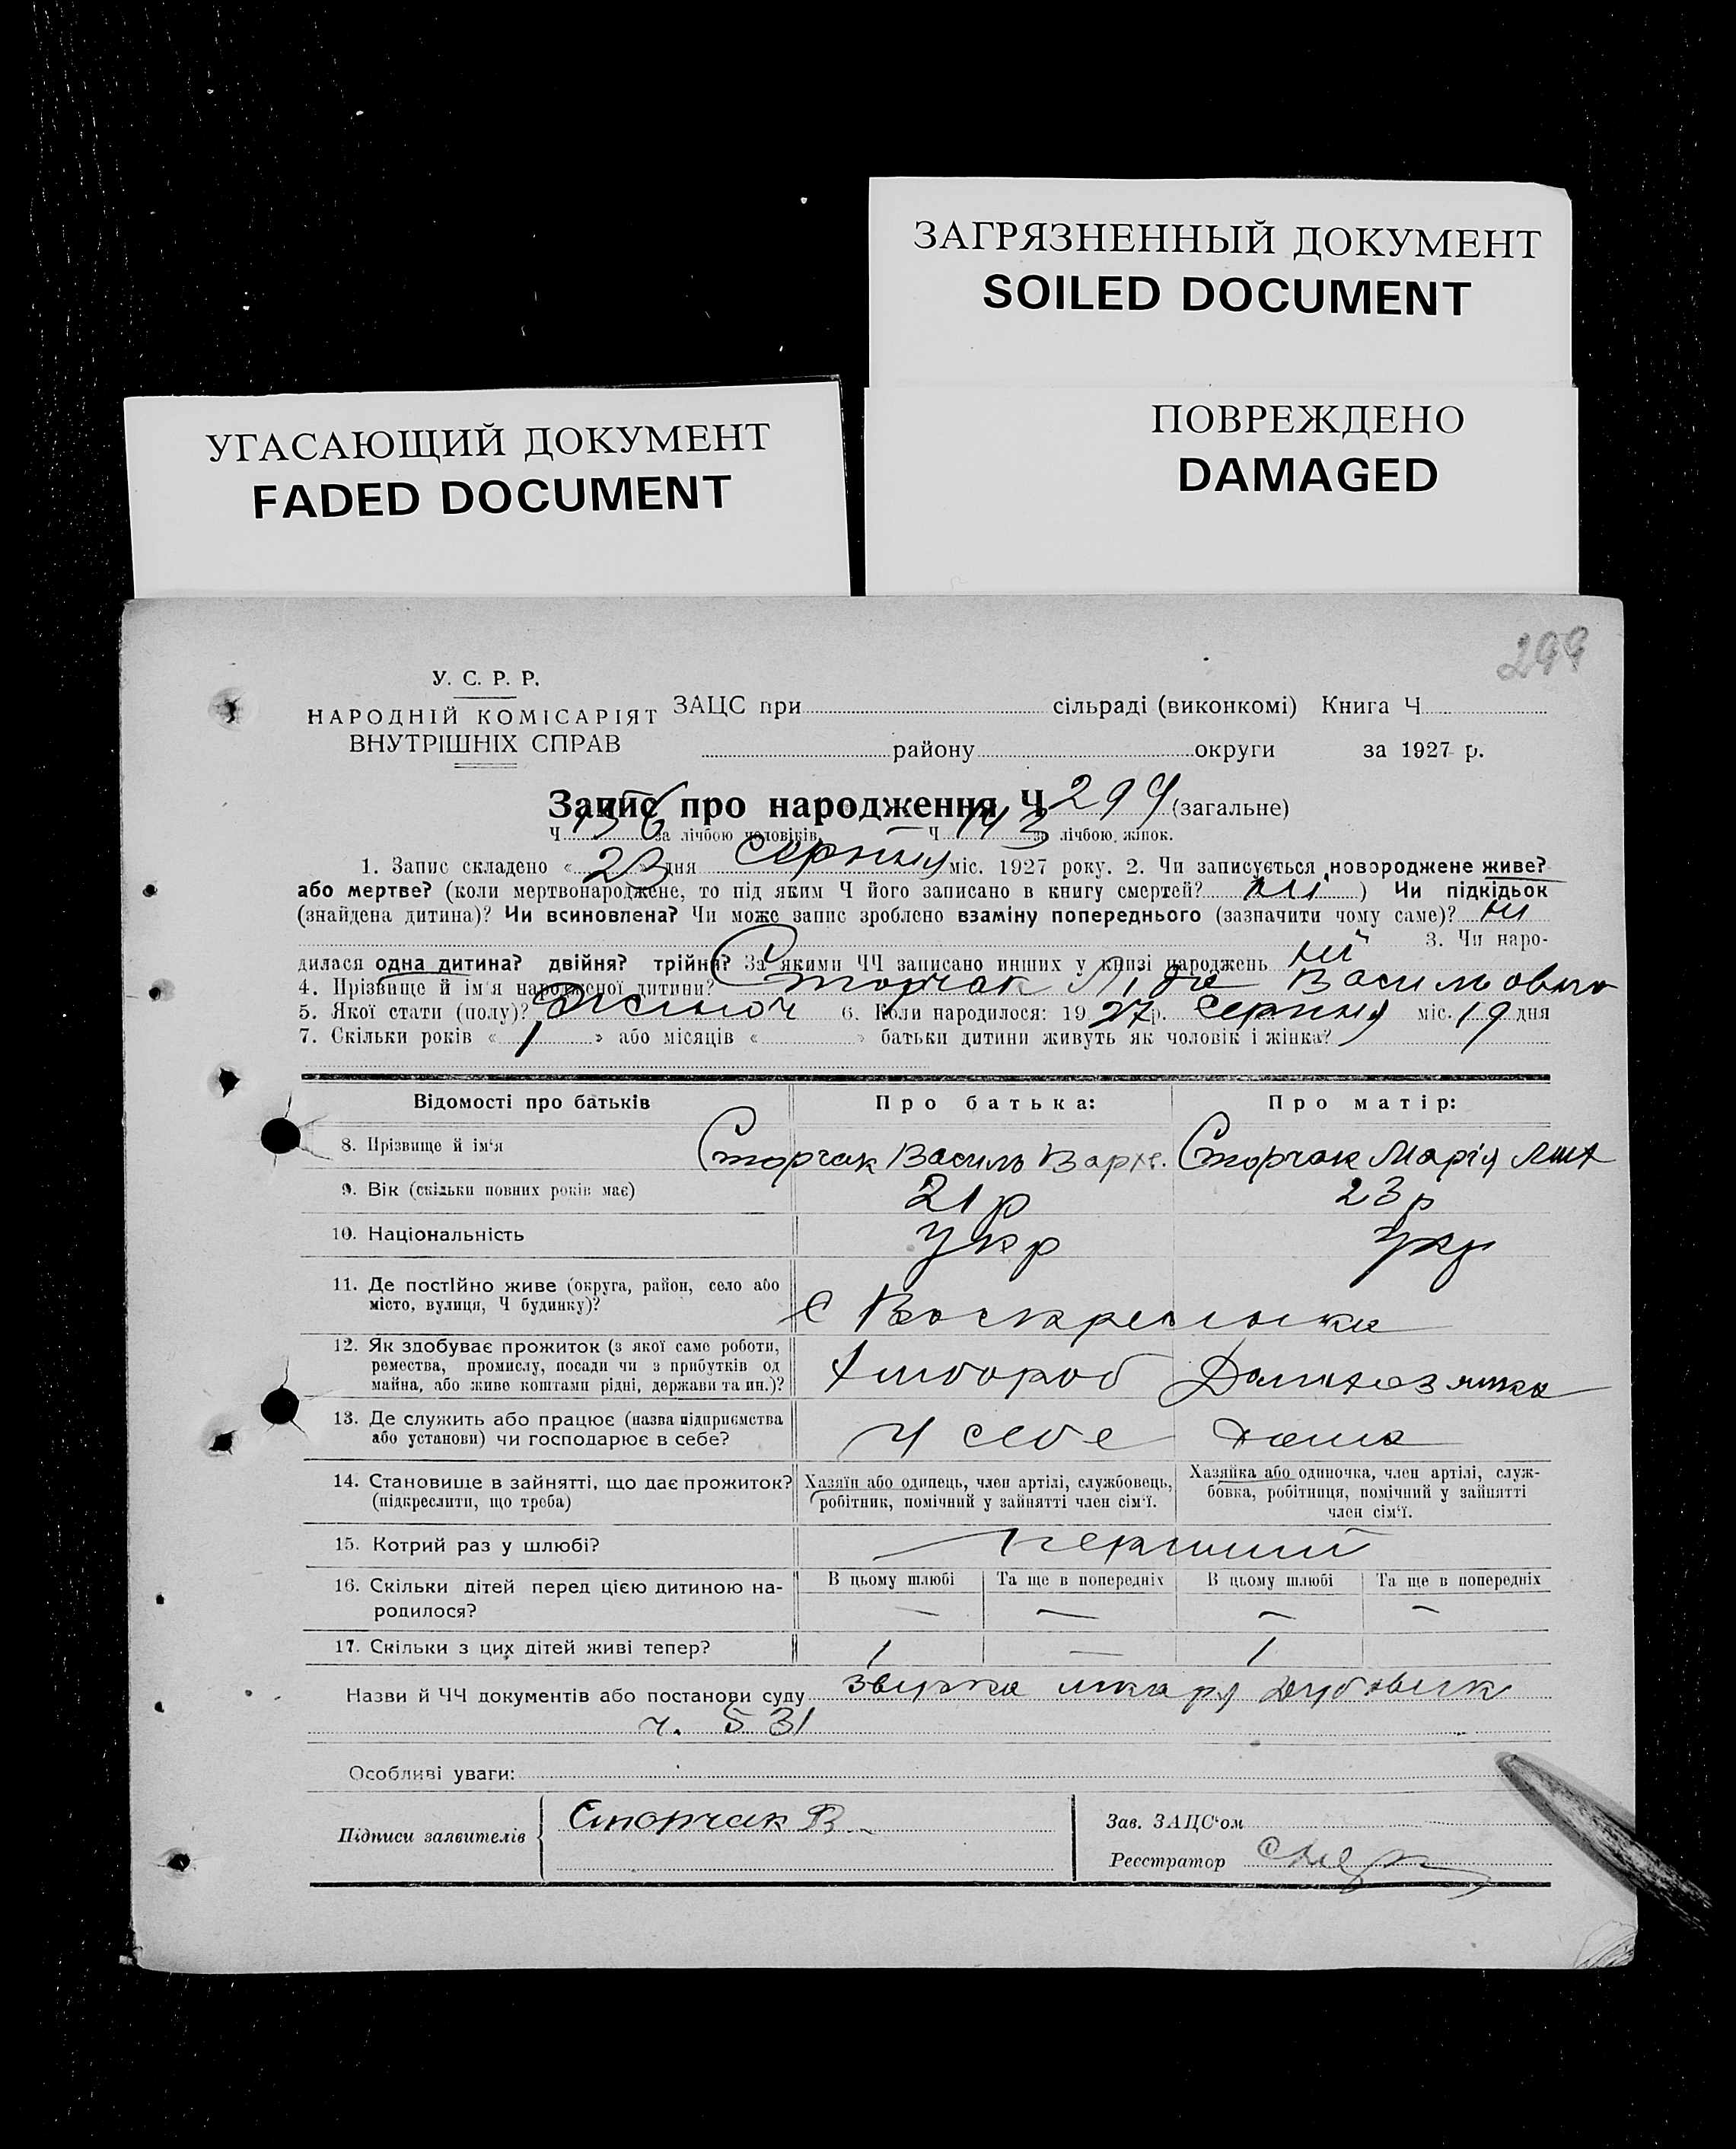 ЗАГРЯЗНЕННЫЙ ДОКУМЕНТ
SOILED DOCUMENT
УГАСАЮЩИЙ ДОКУМЕНТ
FADED DOCUMENT
ПОВРЕЖДЕНО
DAMAGED
299
У. С. Р. Р.
НАРОДНІЙ КОМІСАРІЯТ
ВНУТРІШНІХ СПРАВ
ЗАЦС при сільраді (виконкомі) Книга Ч
району округи за 1927 р.
Запис про народження Ч 299 (загальне)
Ч 156 за лічбою чоловіків, Ч 143 за лічбою жінок.
1. Запис складено « 23 » дня серпня міс. 1927 року. 2. Чи записується новороджене живе?
або мертве? (коли мертвонароджене, то під яким Ч його записано в книгу смертей? ні ) Чи підкідьок
(знайдена дитина)? Чи всиновлена? Чи може запис зроблено взаміну попереднього (зазначити чому саме)? ні
3. Чи наро-
дилася одна дитина? двійня? трійня? За якими ЧЧ записано инших у книзі народжень ні
4. Прізвище й ім'я народженої дитини? Сторчак Ліда Васильовна
5. Якої стати (полу)? жіноч 6. Коли народилося: 1927 р. серпня міс. 19 дня
7. Скільки років « 1 » або місяців « » батьки дитини живуть як чоловік і жінка?
Відомості про батьків Про батька: Про матір:
8. Прізвище й ім'я Сторчак Василь Сторчак Марія
9. Вік (скільки повних років має) 21 р 23 р
10. Національність Укр Укр
11. Де постійно живе (округа, район, село або
місто, вулиця, Ч будинку)? с Воскресенка
12. Як здобуває прожиток (з якої саме роботи,
ремества, промислу, посади чи з прибутків од
майна, або живе коштами рідні, держави та ин.)? Хлібороб Домохозяйка
13. Де служить або працює (назва підприємства
або установи) чи господарює в себе? У себе дома
14. Становище в зайнятті, що дає прожиток?
(підкреслити, що треба)
Хазяїн або одинець, член артілі, службовець,
робітник, помічний у зайнятті член сім'ї.
Хазяйка або одиночка, член артілі, служ-
бовка, робітниця, помічний у зайнятті
член сім'ї.
15. Котрий раз у шлюбі? перший
16. Скільки дітей перед цією дитиною на-
родилося?
В цьому шлюбі Та ще в попередніх В цьому шлюбі Та ще в попередніх
— — — —
17. Скільки з цих дітей живі тепер? 1 — 1
Назви й ЧЧ документів або постанови суду лікаря
ч. 531
Особливі уваги:
Підписи заявителів Сторчак В.
Зав. ЗАЦС'ом
Реєстратор